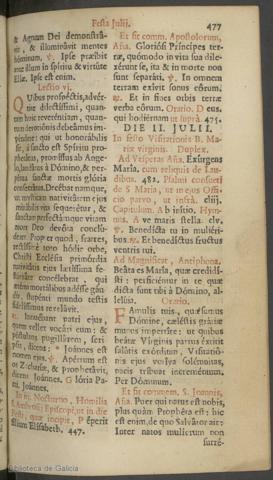 Festa Julii.
477
& Agnum Dei demonstrá-
vit, & illuminávit mentes
hóminum. ℣. Ipse præibit
ante illum in spíritu & virtúte
Elíæ. Ipse est enim.
Lectio vj.
QUibus prospéctis, advér-
tite dilectíssimi, quan-
tum huic reveréntiam, quan-
tum devotiónis debeámus im-
péndere: qui ut honorábilis
à sancto est Spíritu pro-
phetátus, promíssus ab Ange-
lo, laudátus à Dómino, & per-
pétua sanctæ mortis glória
consecrátus. Decet
mortis glória
vitam
Deo devóta conclú-
dere. Propter quod, fratres,
hódie orbe,
Christi Ecclésia primórdia
natívitátis ejus lætíssima fe-
concélebrat, qui
fidem gáu-
mundo testis
ejus,
℟. Innuébant patri ejus,
quem vellet vocári eum: &
póstulans pugillárem, scri-
psit, dicens: Joánnes est
nomen ejus. ℣. Apértum est
os Zacharíæ, & prophetávit,
dicens Joánnes. Glória Pa-
tri, Joánnes.
In iij. Nocturno, Homilia
S. Ambrosii Episcopi, ut in die
Festi, quæ incipit, Péperit
fílium Elísabeth. 447.
Et fit comm. Apostolorum,
Aña. Gloriósi Príncipes ter-
ræ, quómodo in vita sua dile-
xérunt se, ita & in morte non
sunt separáti. ℣. In omnem
terram exívit sonus eórum.
℟. Et in fines orbis terræ
verba eórum. Oratio. Deus,
qui hodiérnam ut suprà. 475.
DIE II. JULII.
In festo Visitationis B. Ma-
riæ virginis. Duplex.
Ad Vesperas Aña. Exúrgens
María, cum reliquis de Lau-
dibus. 482. Psalmi consueti
de S. Maria, ut in ejus Offi-
cio parvo, ut infrà. cliij.
Capitulum. Ab inítio. Hym-
nus. Ave maris stella. clv.
℣. Benedícta tu in muliéri-
bus. ℟. Et benedíctus fructus
ventris tui.
Ad Magnificat, Antiphona.
Beáta es María, quæ credidí-
sti: perficiéntur in te quæ
dicta sunt tibi à Dómino, al-
lelúia. Oratio.
FAmulis tuis, quæsumus
Dómine, cœléstis grátiæ
munus impertíre: ut quibus
beátæ Vírginis partus éxtitit
salútis exórdium, Visitatió-
nis ejus votíva solémnitas,
pacis tríbuat increméntum.
Per Dóminum.
Et fit commem. S. Joannis,
Aña. Puer qui natus est nobis,
plus quàm Prophéta est: hic
est enim, de quo Salvátor ait:
Inter natos mulíerum non
surré-
Biblioteca de Galicia